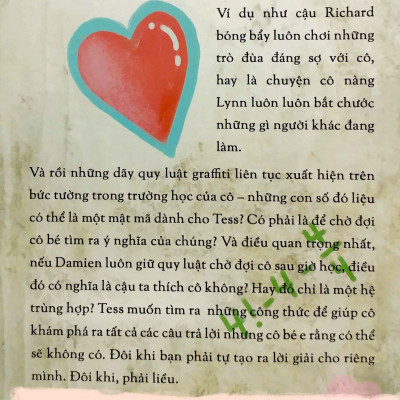 Ví dụ như cậu Richard
bóng bẩy luôn chơi những
trò đùa đáng sợ với cô,
hay là chuyện cô nàng
Lynn luôn luôn bắt chước
những gì người khác đang
làm.
Và rồi những dãy quy luật graffiti liên tục xuất hiện trên
bức tường trong trường học của cô – những con số đó liệu
có thể là một mật mã dành cho Tess? Có phải là để chờ đợi
cô bé tìm ra ý nghĩa của chúng? Và điều quan trọng nhất,
nếu Damien luôn giữ quy luật chờ đợi cô sau giờ học, điều
đó có nghĩa là cậu ta thích cô không? Hay đó chỉ là một hệ
trùng hợp? Tess muốn tìm ra những công thức để giúp cô
khám phá ra tất cả các câu trả lời nhưng cô bé e rằng có thể
sẽ không có. Đôi khi bạn phải tự tạo ra lời giải cho riêng
mình. Đôi khi, phải liều.